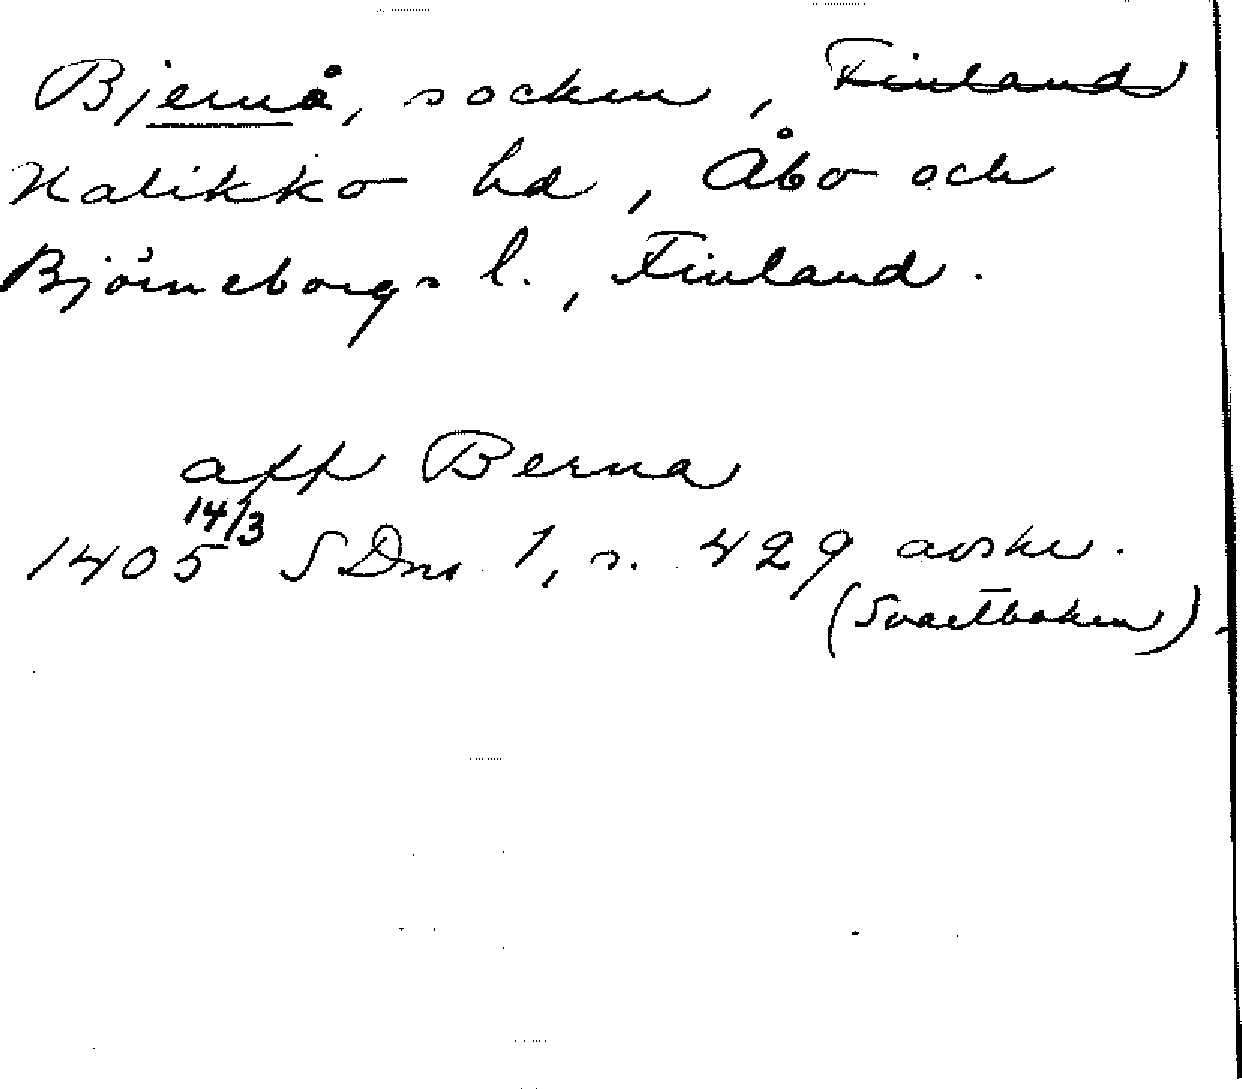 Bjernå, socken, Finland
Halikko hd, Åbo och
Björneborgs l., Finland.
aff Berna
14/3
1405 SDns 1, s. 429 avskr.
(Svartboken).